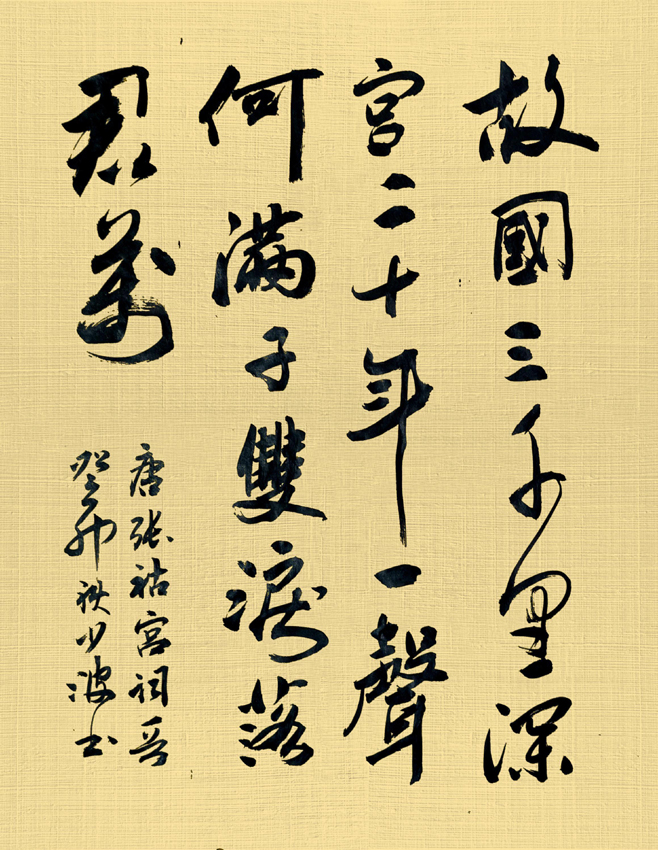 故國三千里深
宮二十年一聲
何滿子雙淚落
君前
唐张祜宮詞
癸卯秋少波书